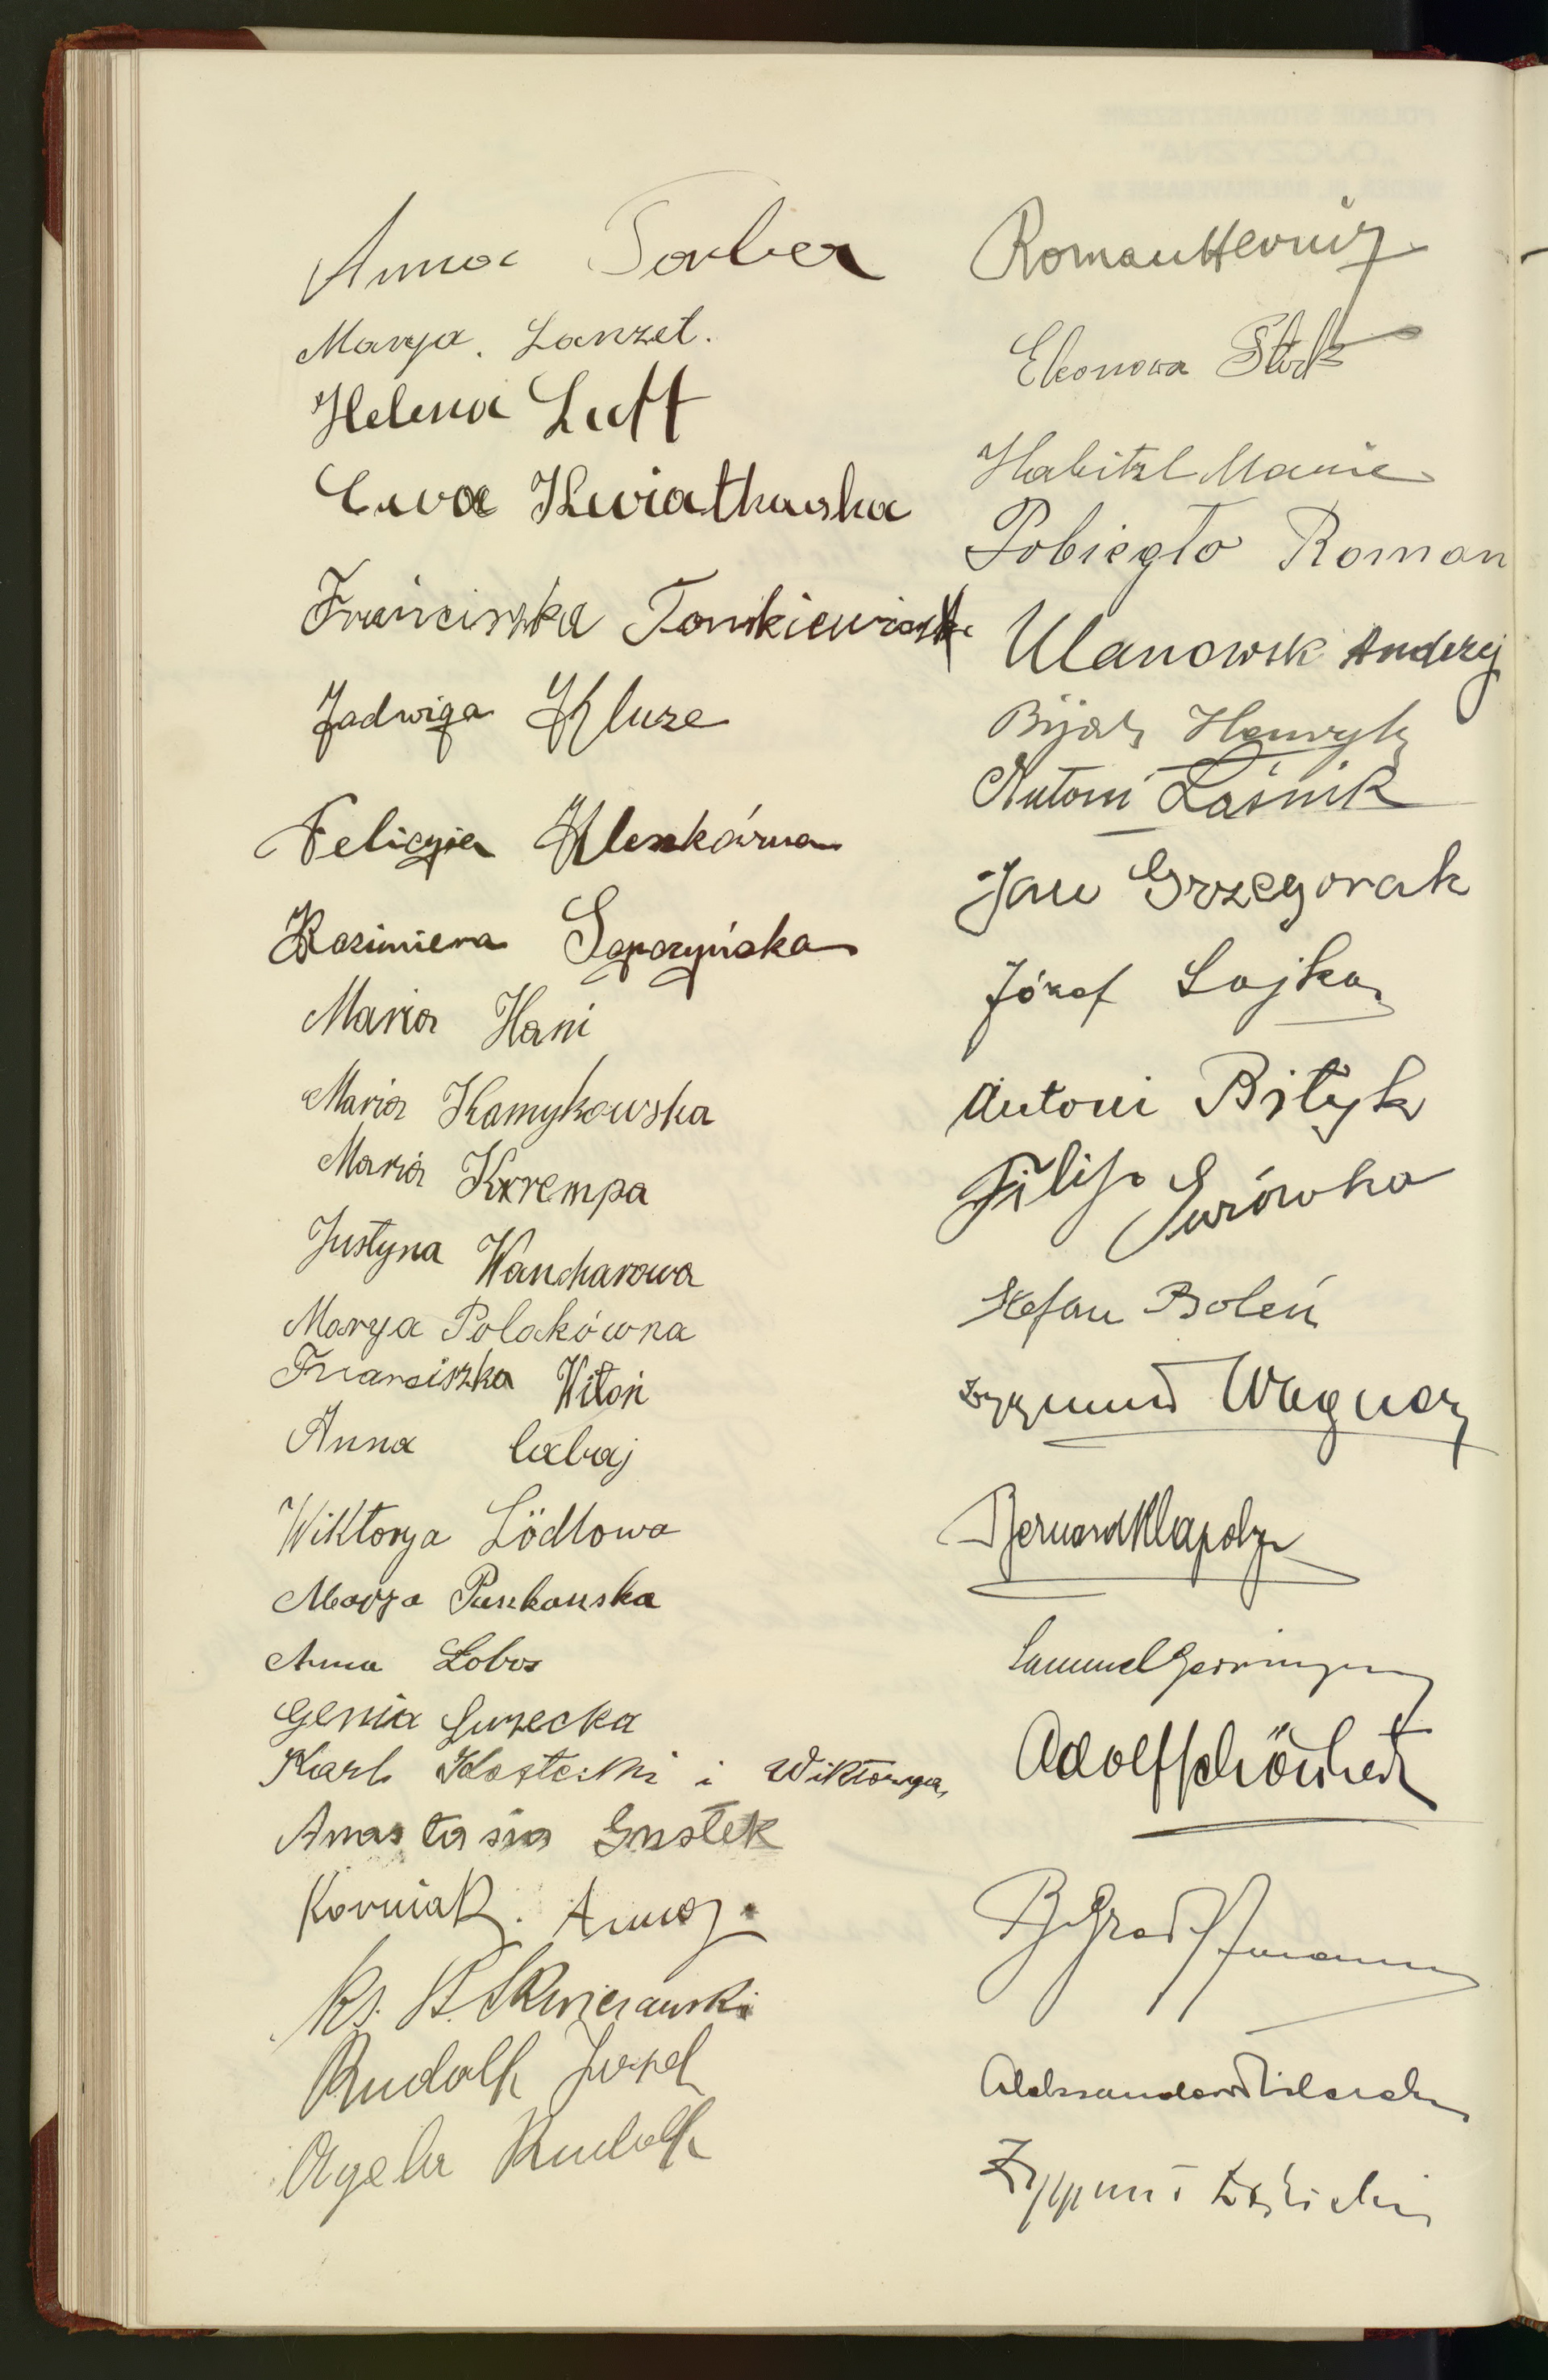 Anna Farber
Marya. Lanzet.
Helena Luft
Ewa Kwiatkowska
Franciszka
Jadwiga Kluze
Felicyia
Kazimiera
Maria Hani
Maria Kamykowska
Maria Krempa
Justyna Wancharowa
Marya Polakówna
Franciszka Witoń
Anna Cabaj
Wiktorya Lödlowa
Marya Pankowska
Anna Lobos
Genia Turecka
Karl Kostecki i Wiktorya
Anastasia Gustek
Korniak. Anna
Ks. St. Skwierawski
Rudolf Jozef
Agela Rudolf
Roman
Eleonora
Habitzl Marie
Pobiegło Roman
Ulanowsk Andrzej
Bijak Henryk
Antoni Laśnik
Jan Grzegorak
Józef Lajka
Antoni Bityk
Filip Surówka
Stefan Boleń
Zygmund Wagner
Bernard Klapholz
Samuel
Adolf Schönherz
Aleksander
Zygmunt